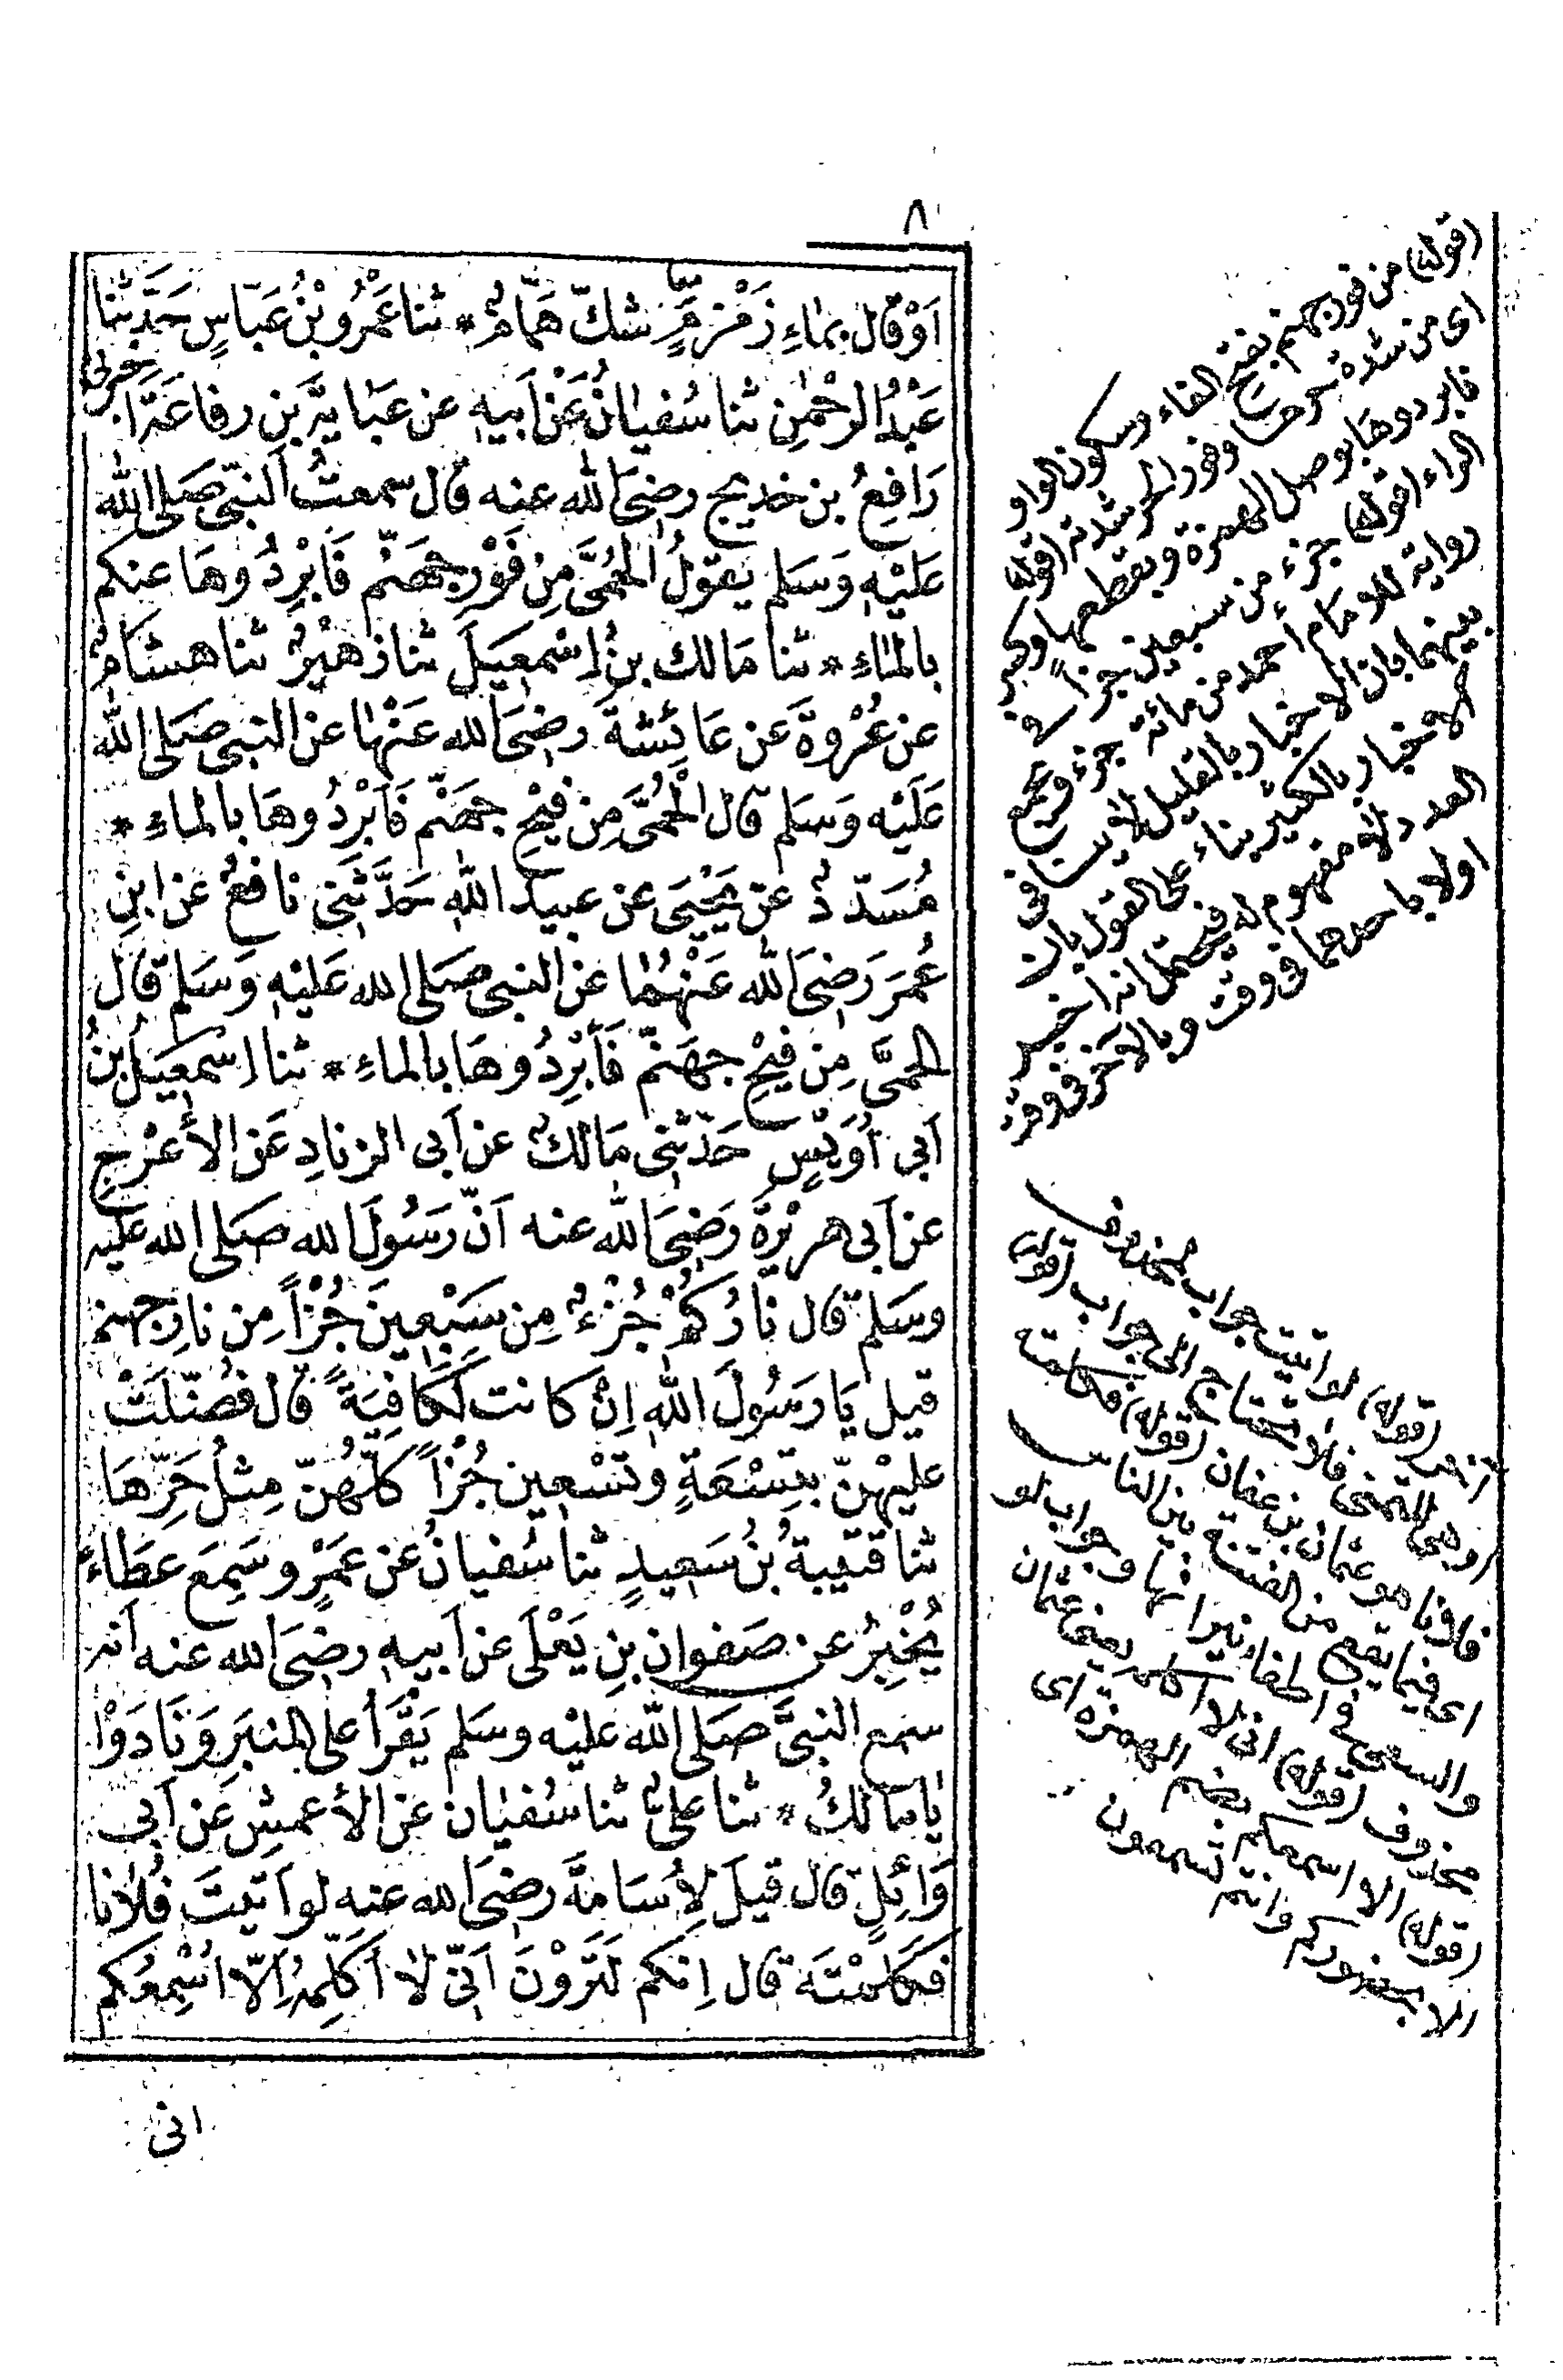 ٨
اَوْ قَال بمَاءِ زَمْزَمٍ شكّ هَمَّامٌ * ثنا عَمْرُو بْنُ عَبّاسٍ حَدَّثنا
عَبْدُ الرحْمٰنِ ثنا سُفيٰانُ عَنْ اَبيهِ عن عبَايَةَ بنِ رفاعَةَ اخبرنى
رَافِعُ بن خديج رضىَ الله عنه قال سمعتُ النبّى صَلى الله
عَلَيْهِ وَسَلم يقولُ الحُمىَّ مِن فَوْرِ جهَنّم فَابْرِدُوهَا عنكم
بالماءِ * ثنا مَالك بنُ اِسْمعيَلَ ثنا زهَيْرٌ ثنا هشامٌ
عن عُرْوةَ عن عَائِشةَ رضىَ الله عَنْها عن النبى صَلى الله
عَلَيْه وَسَلم قال الحُمىَّ مِن فيْحِ جهَنّم فَابْرِدُوهَا بالماءِ *
مُسَدّدٌ عن يَحْيَى عن عبيد اللهِ حَدَّثَنى نافعٌ عن ابنِ
عُمَرَ رَضىَ الله عَنْهُما عن النبى صَلى الله عَليْهِ وَسَلم قَال
الحمىَّ مِن فيْحِ جهَنّم فَابْرِدُوهَا بالماءِ * ثنا اسمعيَلُ بنُ
اَبى اُوَيْسٍ حَدّثنى مَالكٌ عن اَبى الزنادِ عَن الأعْرَجِ
عن اَبى هريْرَةَ رَضىَ الله عنه اَنّ رَسُولَ الله صَلى الله عَليْهِ
وسَلم قال نارُكُمْ جُزْءٌ مِن سَبْعِينَ جُزْأً مِن نارِ جهنم
قيل يَا رَسُولَ اللهِ اِنْ كانت لَكَافِيَةً قال فُضّلَتْ
عليْهنّ بتِسْعَةٍ وتسْعين جُزْأً كلّهُنّ مِثلُ حَرّهَا
ثنا قتيبةُ بنُ سَعيدٍ ثنا سُفيانُ عن عَمْرٍو سَمِعَ عطَاءً
يُخْبِرُ عن صَفوانِ بنِ يَعْلَى عن اَبيهِ رضىَ الله عنه اَنه
سمع النبىَّ صَلى الله عليْه وسَلم يَقْرَأ على المنبَرِ وَنَادَوْا
يَا مَالكُ * ثنا علىٌّ ثنا سُفيٰان عن الأعمشِ عن اَبى
وَائِلٍ قال قيلَ لِأُسَامَةَ رضىَ الله عنه لو اَتيتَ فُلانا
فكَلمْتَه قال اِنكم لَتَرَوْنَ اَنّى لا اُكَلِّمُهُ اِلّا اُسْمِعُكم
انى
(قوله) من فور جهنم بفتح الفاء وسكون الواو
اى من شدة حرها وفور الحر شدته (قوله)
فابردوها بوصل الهمزة وبقطعها وكسر
الراء (قوله) جزء من سبعين جزأ فى
رواية للامام احمد من مائة جزء ويجمع
بينهما بان الاخبار بالقليل لا ينافى
الاخبار بالكثير بناء على القول بان
العدد لا مفهوم له فيحتمل انه اخبر
اولا باحدهما فى وقت وبالآخر فى وقت
(قوله) لو اتيت جواب لو محذوف
او هى للتمنى فلا تحتاج الى جواب (قوله)
فلانا هو عثمان بن عفان (قوله) فكلمته
اى فيما يقع من الفتنة بين الناس
والسعى فى اطفاء نيرانها وجواب لو
محذوف (قوله) انى لا اكلمه يعنى عثمان
(قوله) الا اسمعكم بضم الهمزة اى
الا بحضوركم وانتم تسمعون